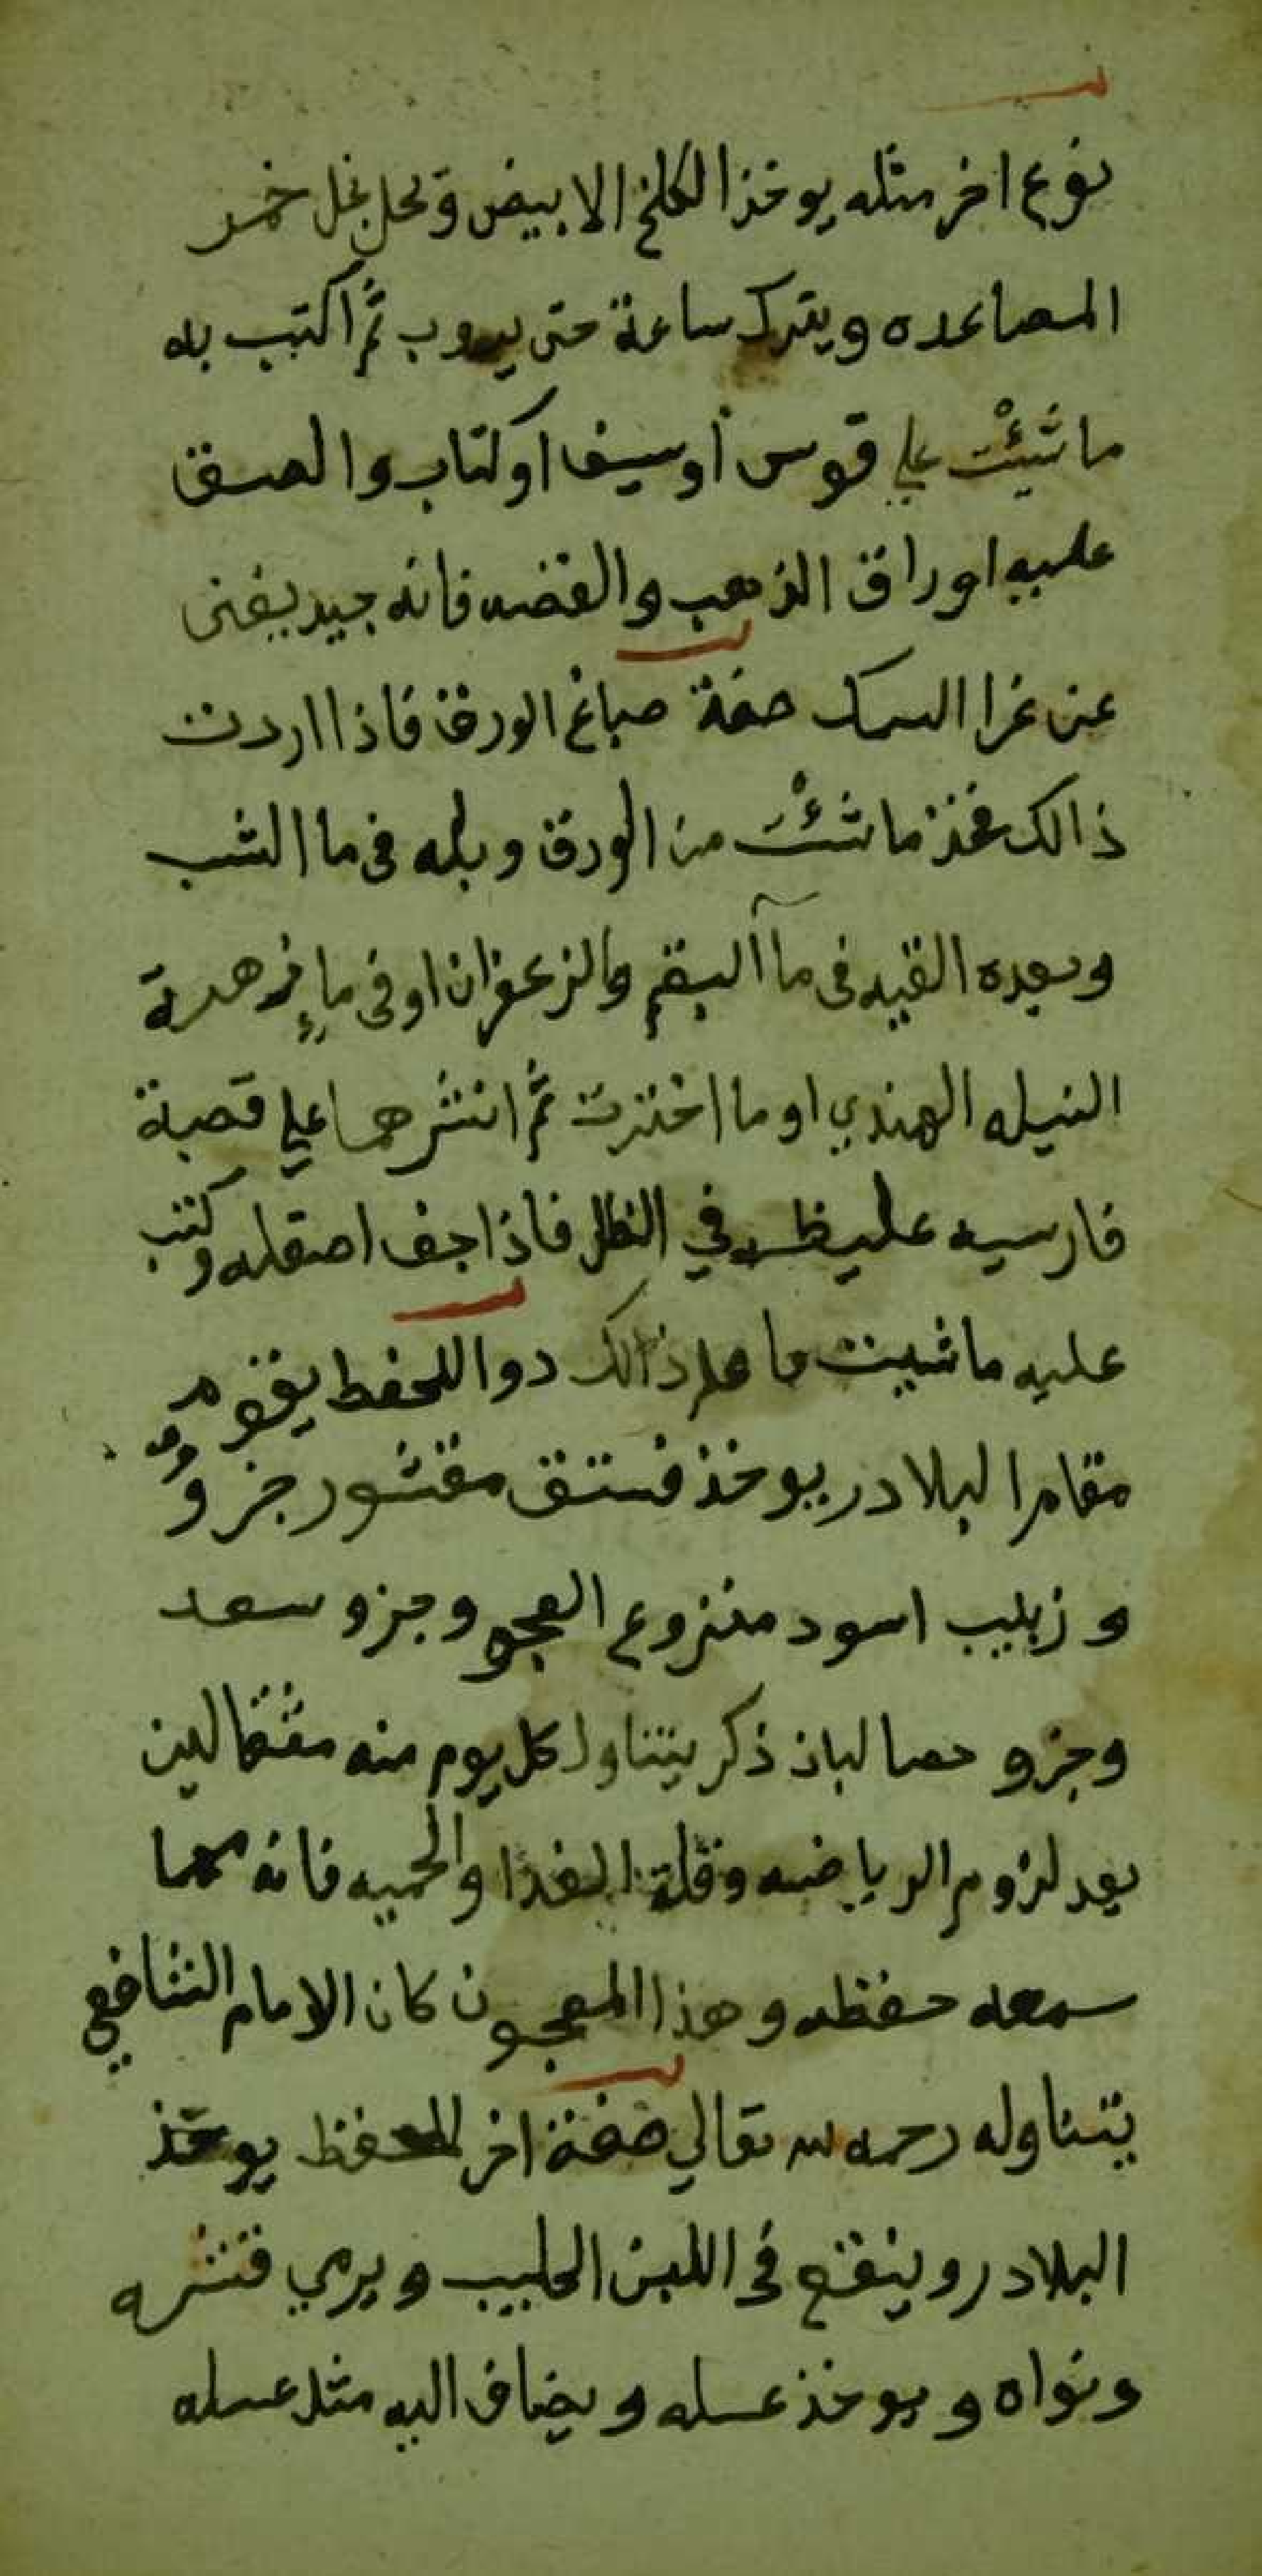 نوع اخر مثله يوخذ الكلخ الابيض وتحل بخل خمر
المصاعده ويترك ساعة حتى يدوب ثم اكتب به
ما شيئت علي قوس او سيف او كتاب والصق
عليه اوراق الذهب والفضه فانه جيد يغنى
عن غرا السمك صفة صباغ الورق فاذا اردت
ذالك فخذ ما شئت من الورق وبله فى ما الشب
وبعده القيه فى ما البقم والزعفران او فى ماء زهرة
النيله الهندي او ما اخترت ثم انشرهما علي قصبة
فارسيه غليظه في الظل فاذا جف اصقله وكتب
عليه ما شيت ذالك دوا للحفظ يقوم
مقام البلادر يوخذ فستق مقشور جزو
و زبيب اسود منزوع العجم وجزو سعد
وجزو حصا لبان ذكر يتناول كل يوم منه مثقالين
بعد لزوم الرياضه وقلة الغذا والحميه فانه مهما
سمعه حفظه وهذا المعجون كان الامام الشافعي
يتناوله رحمه الله تعالي صفة اخر للحفظ يوخذ
البلادر وينقع فى اللبن الحليب ويرمي قشره
ونواه و يوخذ عسله و يضاف اليه مثل عسله